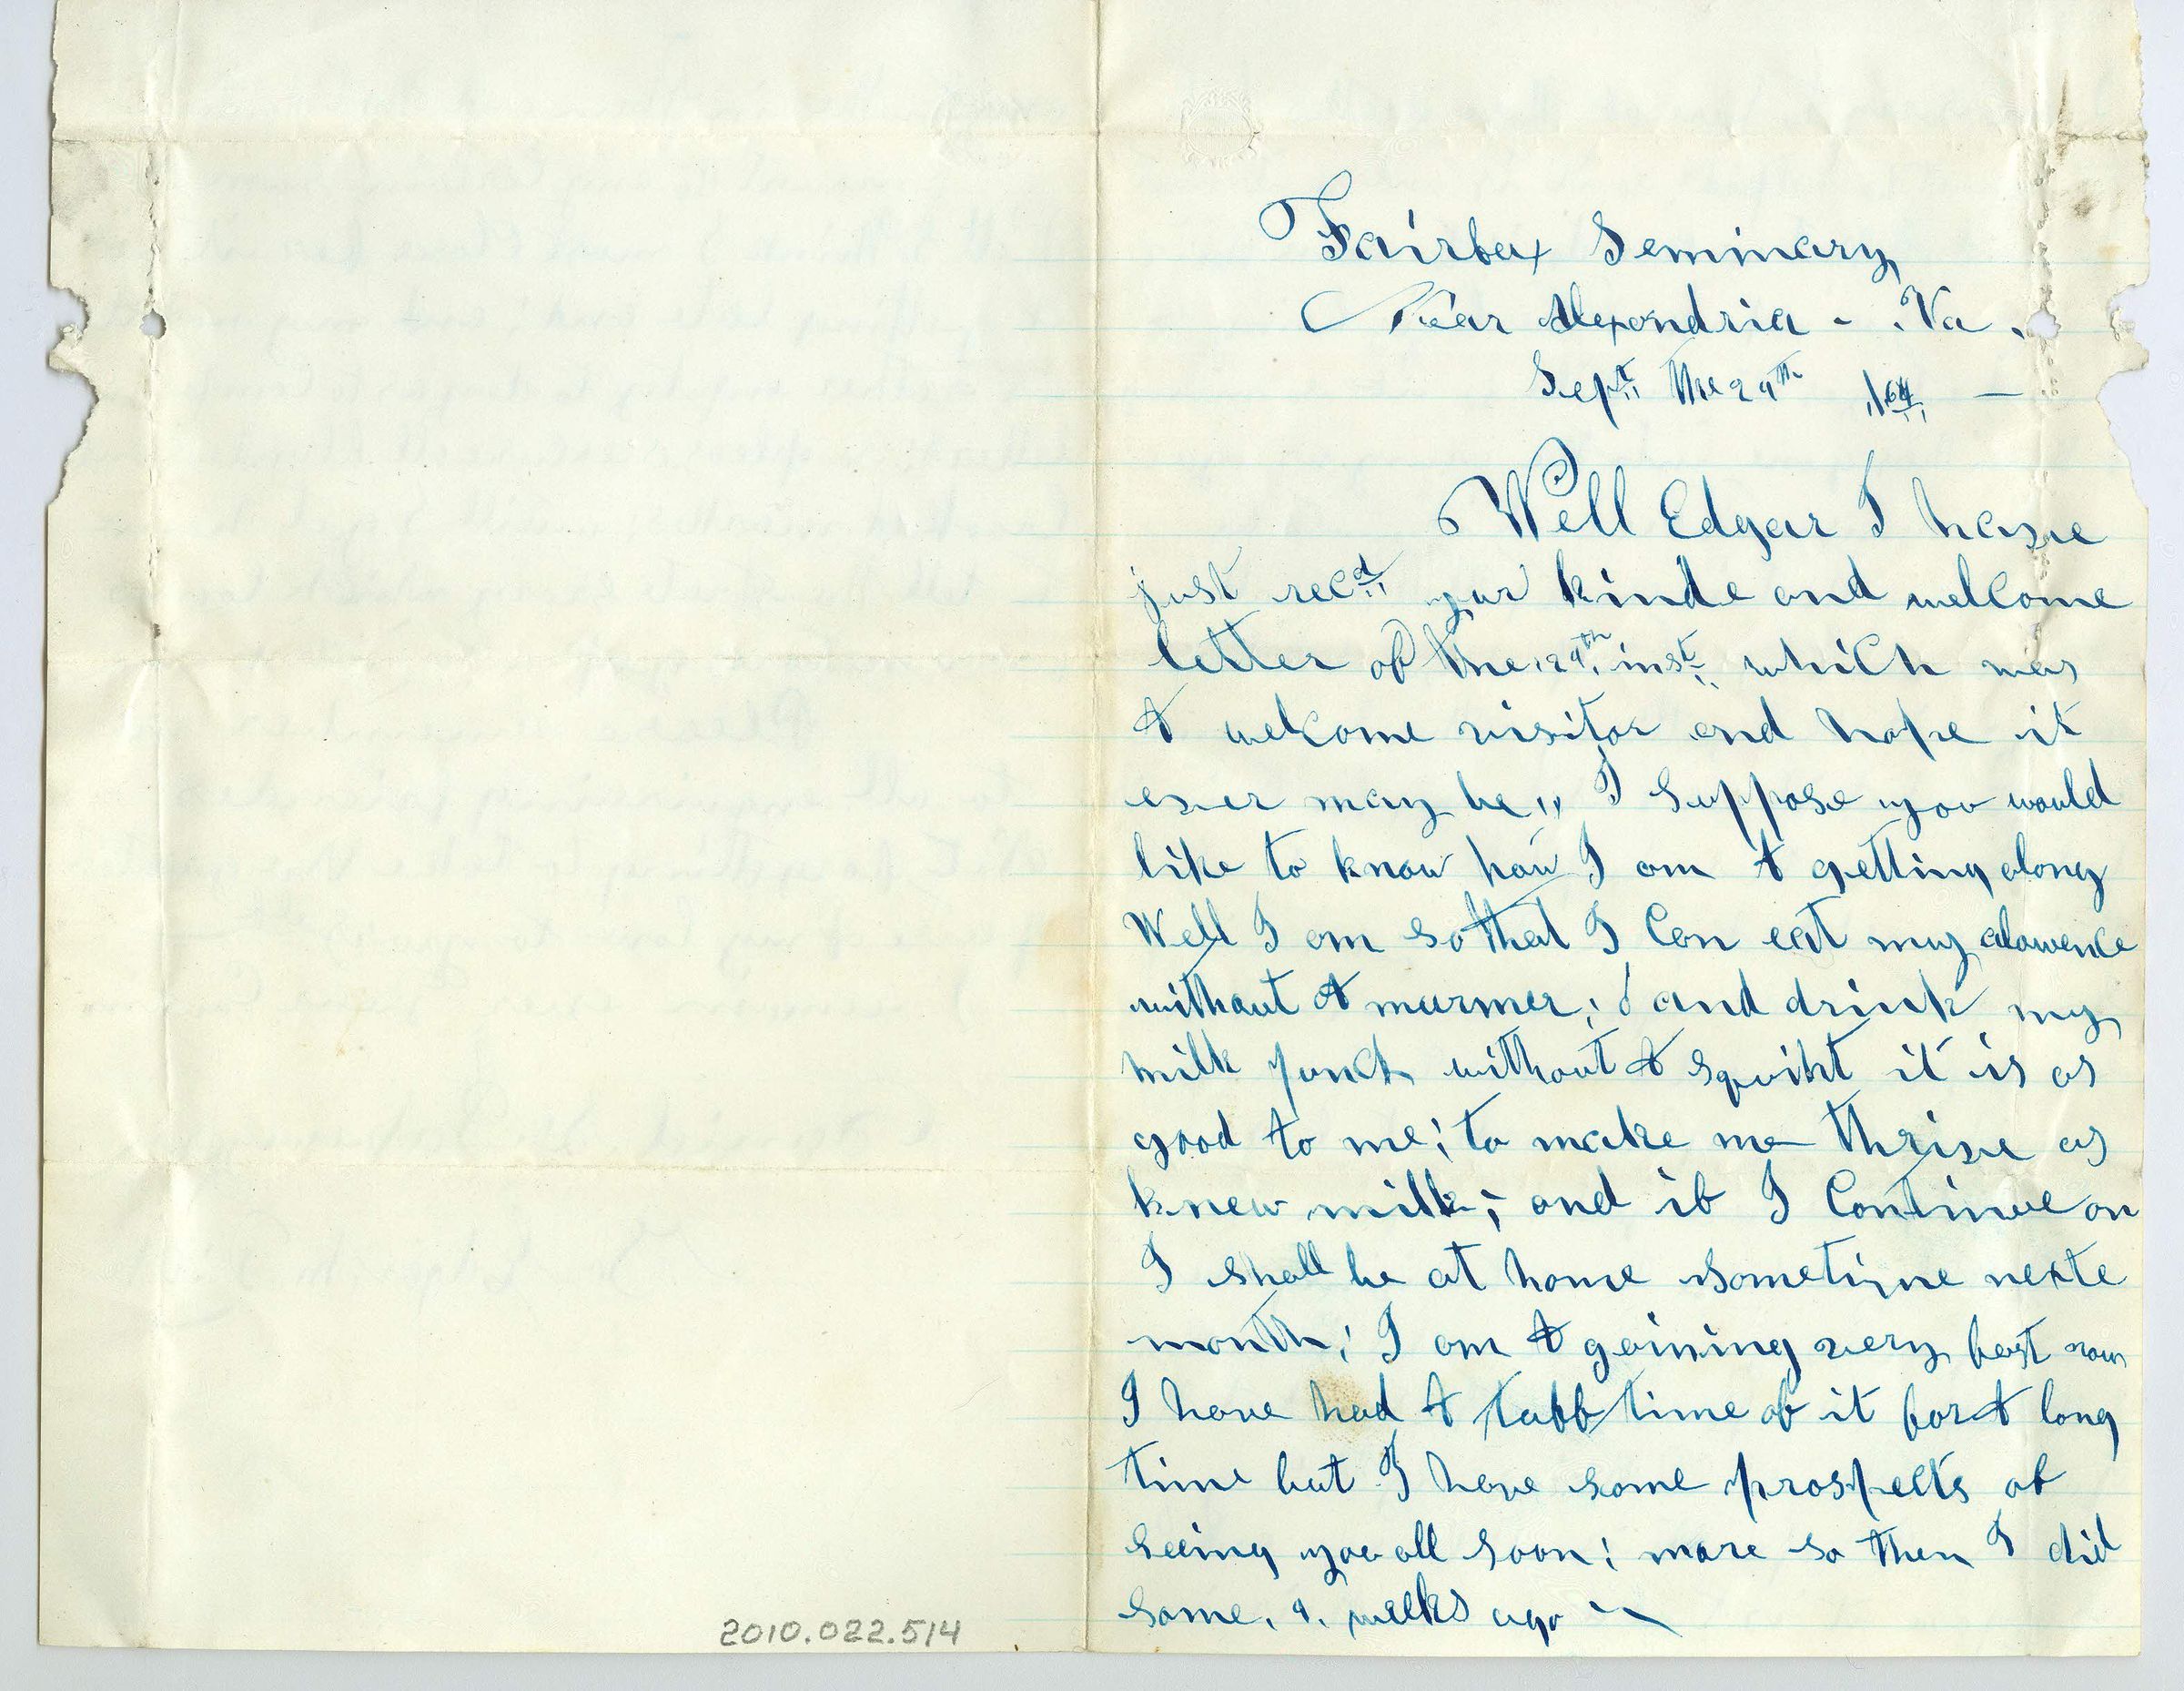 Fairfax Seminary
Near Alexandria - Va.
Sept the 29th /64 —
Well Edgar I have
just recd your kinde and wellcome
letter of the 24th inst which was
A welcome visitor and hope it
ever may be,, I suppose you would
like to know how I am A getting along
Well I am so that I Can eat my alowence
without A murmer; and drink my
milk punch without A squiht it is as
good to me; to make me thrive as
knew milk; and if I Continue on
I shall be at home sometime nexte
month; I am A gaining very fast now
I have had A tuff time of it for A long
time but I have some prospects of
seeing you all soon; more so then I did
some. 9. weeks ago
2010.022.514